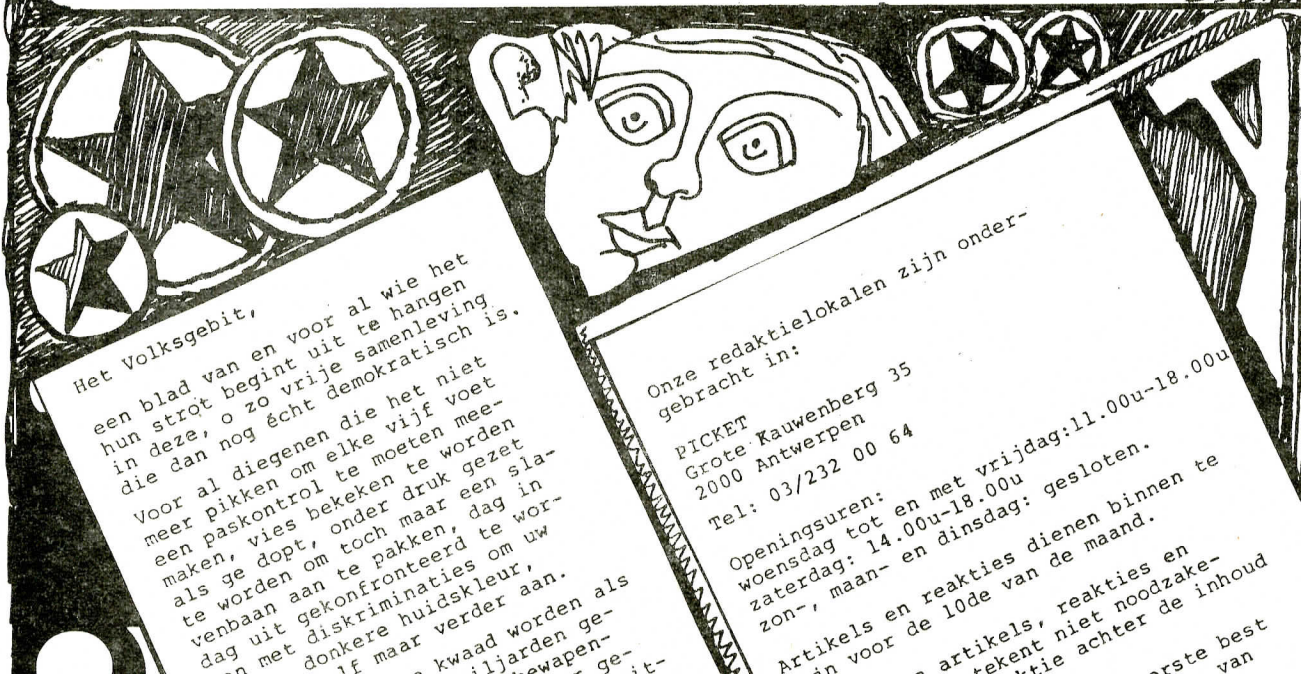 Het Volksgebit,
een blad van en voor al wie het
hun strot begint uit te hangen
in deze, o zo vrije samenleving
die dan nog écht demokratisch is.
Voor al diegenen die het niet
meer pikken om elke vijf voet
een paskontrol te moeten mee-
maken, vies bekeken te worden
als ge dopt, onder druk gezet
te worden om toch maar een sla-
venbaan aan te pakken, dag in
dag uit gekonfronteerd te wor-
met diskriminaties om uw
donkere huidskleur,
maar verder aan.
kwaad worden als
ge-
ge-
Onze redaktielokalen zijn onder-
gebracht in:
PICKET
Grote Kauwenberg 35
2000 Antwerpen
Tel: 03/232 00 64
Openingsuren:
woensdag tot en met vrijdag:11.00u-18.00u
zaterdag: 14.00u-18.00u
zon-, maan- en dinsdag: gesloten.
Artikels en reakties dienen binnen te
voor de 10de van de maand.
artikels, reakties en
niet noodzake-
achter de inhoud
best
van